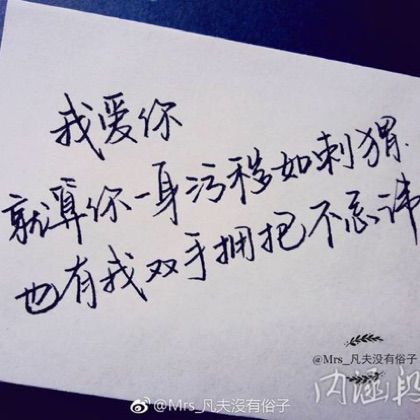 我爱你
就算你一身污秽如刺猬
也有我双手拥抱不忌讳
@Mrs_凡夫沒有俗子
内涵段
@Mrs_凡夫沒有俗子